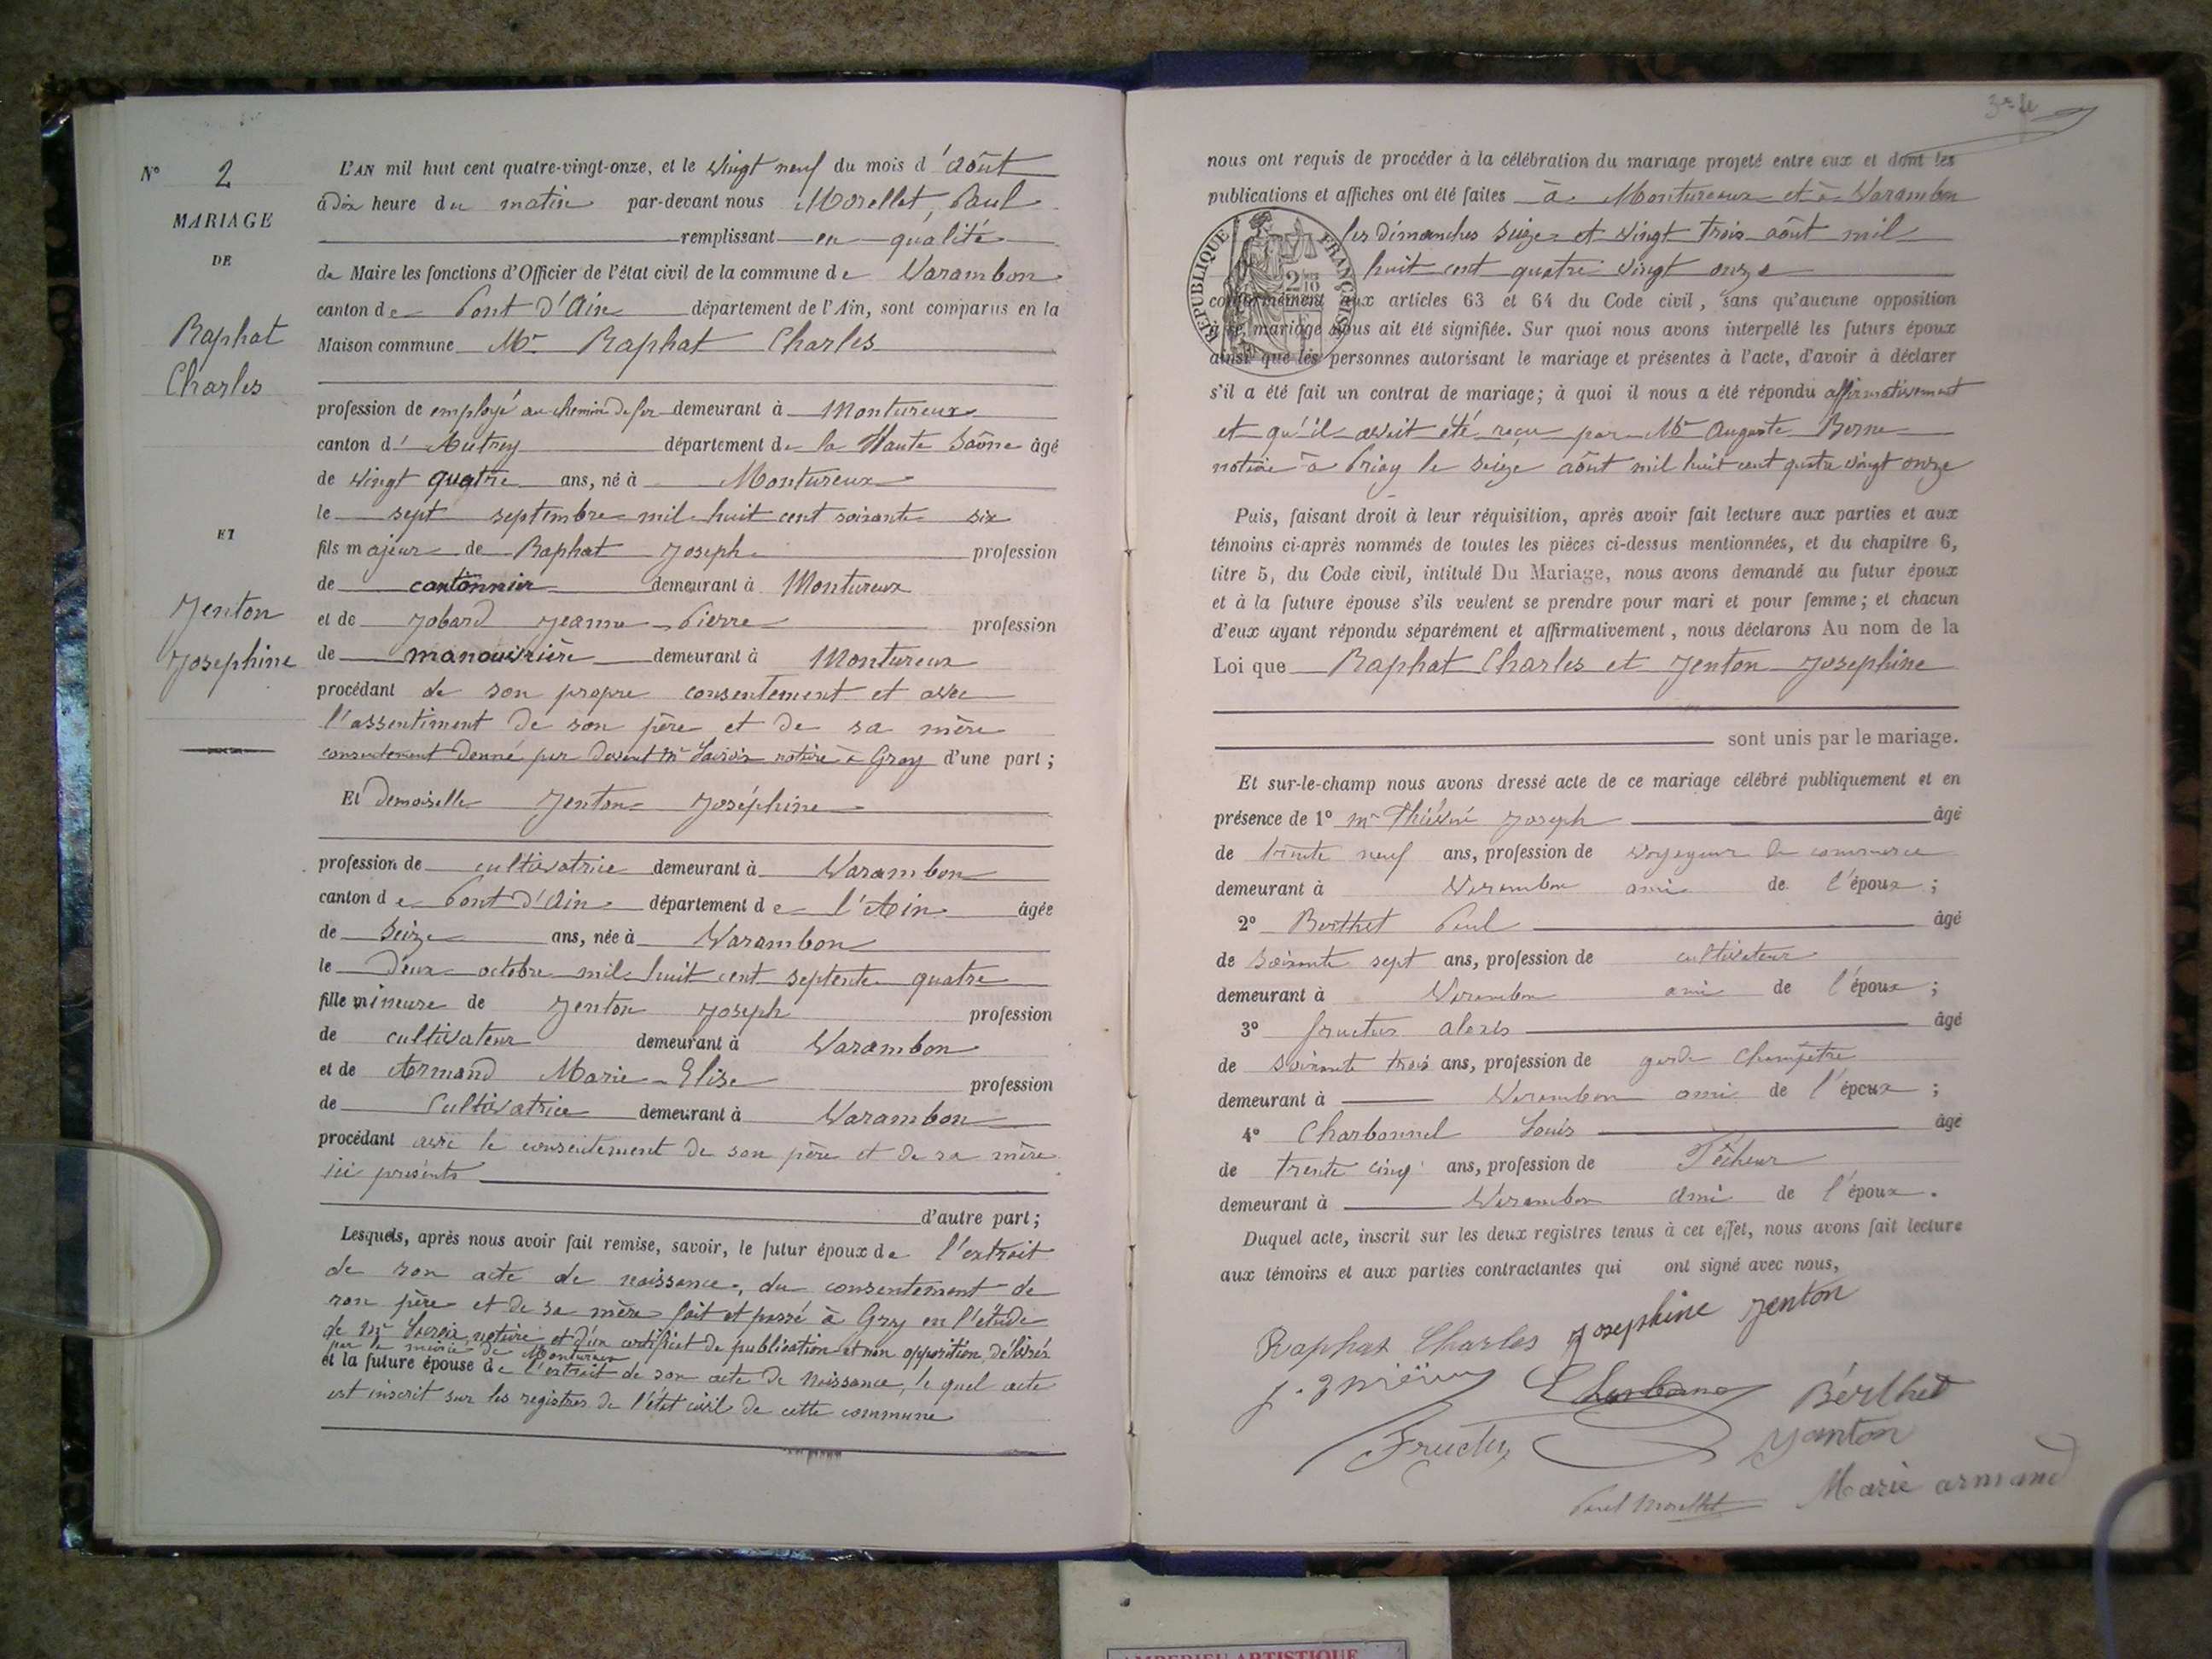 N° 2
MARIAGE
DE
Raphat
Charles
ET
Jenton
Josephine
L'AN mil huit cent quatre-vingt-onze, et le vingt neuf du mois d'août
à dix heure du matin par-devant nous Morellet, Paul
remplissant en qualité
de Maire les fonctions d'Officier de l'état civil de la commune de Varambon
canton de Pont d'Ain département de l'Ain, sont comparus en la
Maison commune Mr Raphat Charles
profession de employé au chemin de fer demeurant à Montureux
canton d'Autrey département de la Haute Saône âgé
de vingt quatre ans, né à Montureux
le sept septembre mil huit cent soixante six
fils majeur de Raphat Joseph profession
de cantonnier demeurant à Montureux
et de Jobard Jeanne-Pierre profession
de manouvrière demeurant à Montureux
procédant de son propre consentement et avec
l'assentiment de son père et de sa mère
consentement donné par devant Mr notaire à Gray d'une part;
Et demoiselle Jenton Joséphine
profession de cultivatrice demeurant à Varambon
canton de Pont d'Ain département de l'Ain âgée
de Seize ans, née à Varambon
le deux octobre mil huit cent septente quatre
fille mineure de Jenton Joseph profession
de cultivateur demeurant à Varambon
et de Armand Marie-Elise profession
de Cultivatrice demeurant à Varambon
procédant avec le consentement de son père et de sa mère
ici présents
d'autre part;
Lesquels, après nous avoir fait remise, savoir, le futur époux de l'extrait
de son acte de naissance, du consentement de
son père et de sa mère fait et passé à Gray en l'étude
de Mr notaire et d'un certificat de publication et non opposition, délivré
par la mairie de Montureux
et la future épouse de l'extrait de son acte de naissance, le quel acte
est inscrit sur les registres de l'état civil de cette commune
nous ont requis de procéder à la célébration du mariage projeté entre eux et dont les
publications et affiches ont été faites à Montureux et à Varambon
les dimanches seize et vingt trois août mil
huit cent quatre vingt onze
REPUBLIQUE FRANÇAISE
conformément aux articles 63 et 64 du Code civil, sans qu'aucune opposition
à ce mariage nous ait été signifiée. Sur quoi nous avons interpellé les futurs époux
ainsi que les personnes autorisant le mariage et présentes à l'acte, d'avoir à déclarer
s'il a été fait un contrat de mariage; à quoi il nous a été répondu affirmativement
et qu'il avait été reçu par Mr Auguste Berne
notaire à Priay le seize août mil huit cent quatre vingt onze
Puis, faisant droit à leur réquisition, après avoir fait lecture aux parties et aux
témoins ci-après nommés de toutes les pièces ci-dessus mentionnées, et du chapitre 6,
titre 5, du Code civil, intitulé Du Mariage, nous avons demandé au futur époux
et à la future épouse s'ils veulent se prendre pour mari et pour femme; et chacun
d'eux ayant répondu séparément et affirmativement, nous déclarons Au nom de la
Loi que Raphat Charles et Jenton Josephine
sont unis par le mariage.
Et sur-le-champ nous avons dressé acte de ce mariage célébré publiquement et en
présence de 1° Mr Joseph âgé
de trente neuf ans, profession de voyageur de commerce
demeurant à Varambon ami de l'époux;
2° Berthet Paul âgé
de soixante sept ans, profession de cultivateur
demeurant à Varambon ami de l'époux;
3° fructus alexis âgé
de soixante trois ans, profession de garde champêtre
demeurant à Varambon ami de l'époux;
4° Charbonnel Louis âgé
de trente cinq ans, profession de Pêcheur
demeurant à Varambon ami de l'époux.
Duquel acte, inscrit sur les deux registres tenus à cet effet, nous avons fait lecture
aux témoins et aux parties contractantes qui ont signé avec nous,
Raphat Charles Josephine Jenton
Bérthet
Fructus Janton
Paul Morellet Marie armand
AMBERIEU ARTISTIQUE